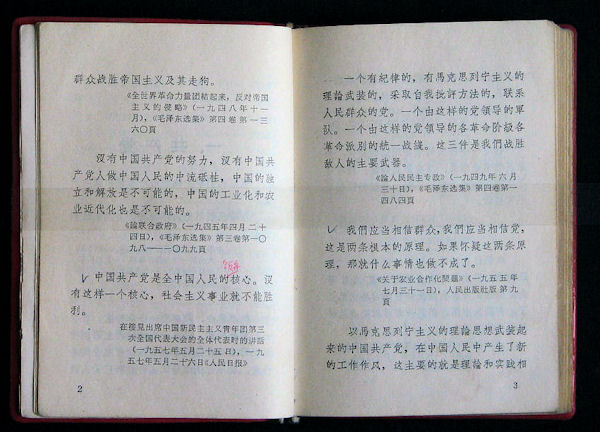 群众战胜帝国主义及其走狗。
《全世界革命力量团结起来，反对帝国
主义的侵略》(一九四八年十一
月)，《毛泽东选集》第四卷第一三
六〇頁
沒有中国共产党的努力，沒有中国共
产党人做中国人民的中流砥柱，中国的独
立和解放是不可能的，中国的工业化和农
业近代化也是不可能的。
《論联合政府》(一九四五年四月二十
四日)，《毛泽东选集》第三卷第一〇
九八——一〇九九頁
中国共产党是全中国人民的核心。沒
有这样一个核心，社会主义事业就不能胜
利。
在接見出席中国新民主主义青年团第三
次全国代表大会的全体代表时的讲話
(一九五七年五月二十五日)，一九
五七年五月二十六日《人民日报》
2
一个有紀律的，有馬克思列宁主义的
理論武装的，采取自我批評方法的，联系
人民群众的党。一个由这样的党領导的軍
队。一个由这样的党領导的各革命阶級各
革命派別的統一战綫。这三件是我們战胜
敌人的主要武器。
《論人民民主专政》(一九四九年六月
三十日)，《毛泽东选集》第四卷第一
四八四頁
我們应当相信群众，我們应当相信党，
这是两条根本的原理。如果怀疑这两条原
理，那就什么事情也做不成了。
《关于农业合作化問題》(一九五五年
七月三十一日)，人民出版社版第九
頁
以馬克思列宁主义的理論思想武装起
来的中国共产党，在中国人民中产生了新
的工作作风，这主要的就是理論和实践相
3